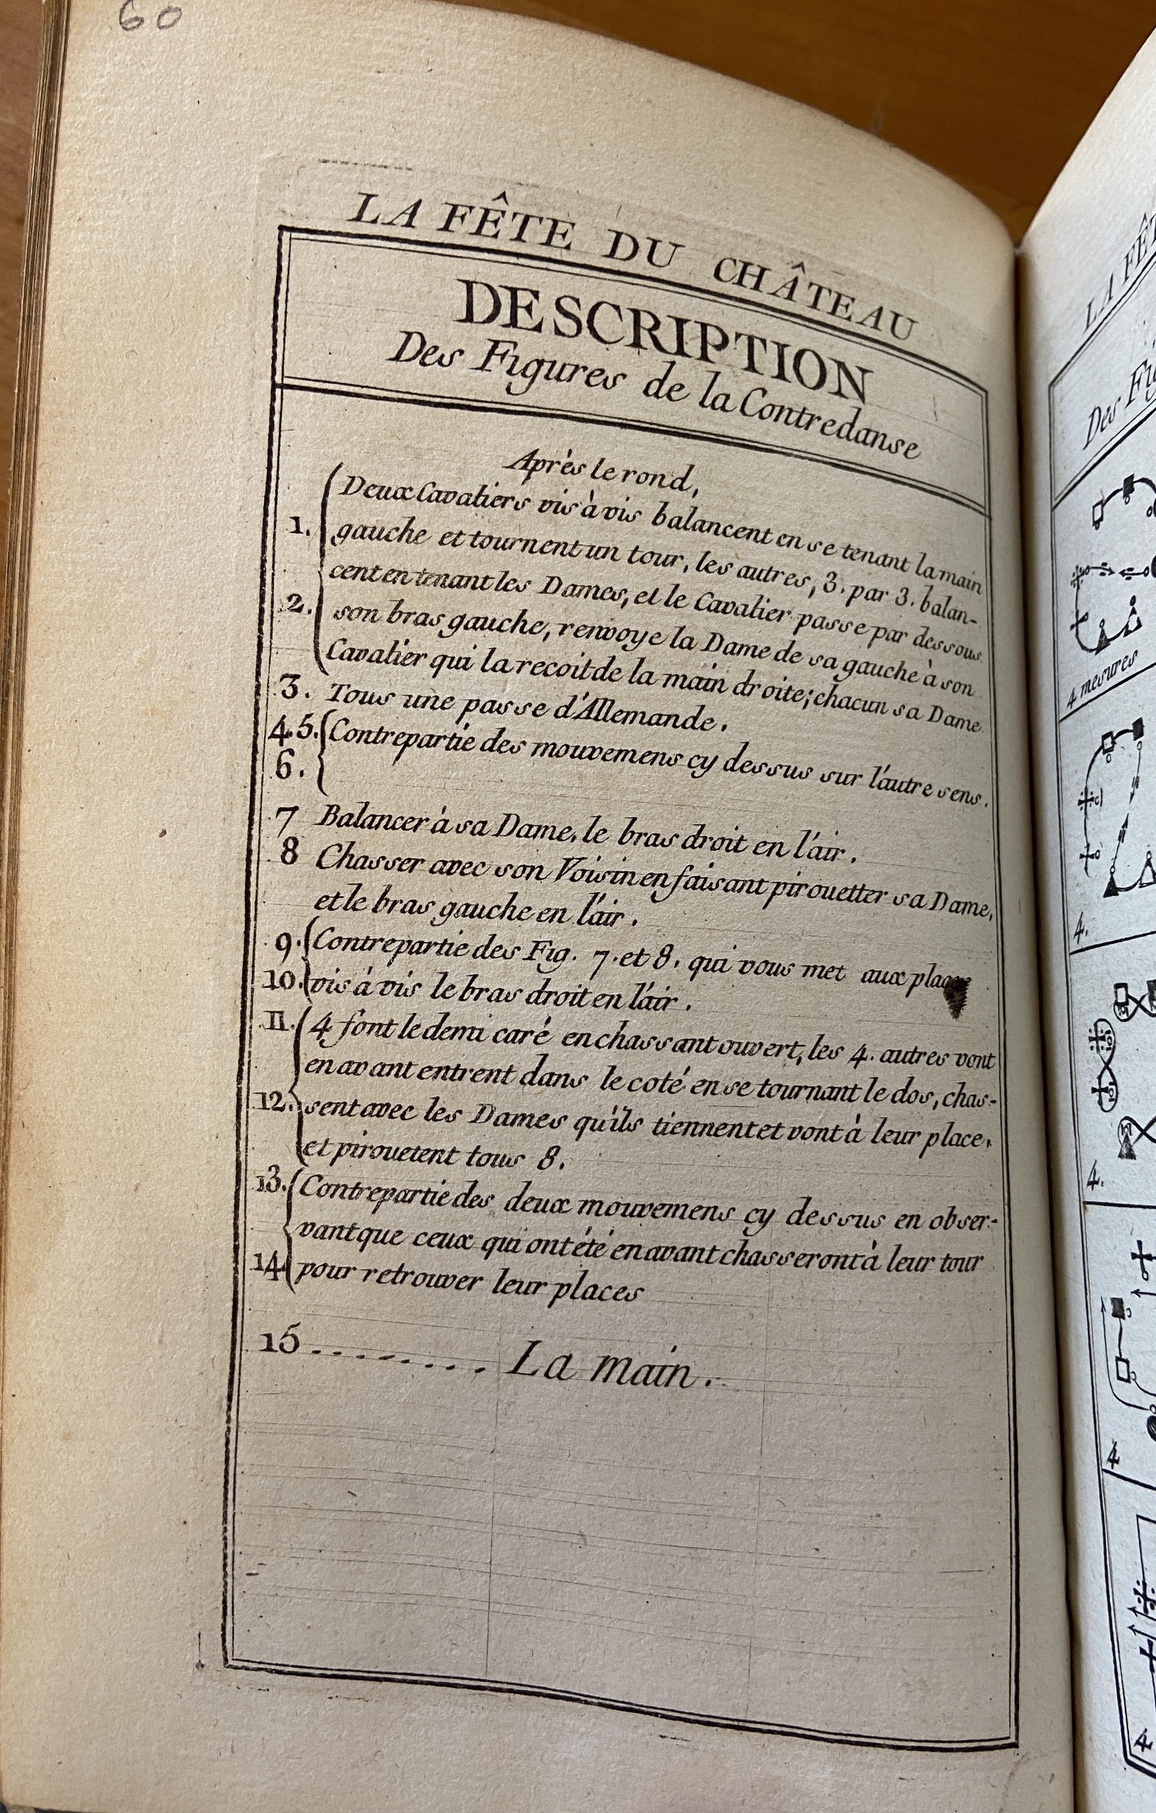 60
LA FÊTE DU CHÂTEAU
DESCRIPTION
Des Figures de la Contredanse
Après le rond,
Deux Cavaliers vis à vis balancent en se tenant la main
1. gauche et tournent un tour, les autres, 3. par 3. balan-
cent en tenant les Dames, et le Cavalier passe par dessous
2. son bras gauche, renvoye la Dame de sa gauche à son
Cavalier qui la recoit de la main droite; chacun sa Dame
3. Tous une passe d'Allemande.
4. 5. Contrepartie des mouvemens cy dessus sur l'autre sens.
6.
7 Balancer à sa Dame, le bras droit en l'air.
8 Chasser avec son Voisin en faisant pirouetter sa Dame,
et le bras gauche en l'air.
9. Contrepartie des Fig. 7. et 8. qui vous met aux
10. vis à vis le bras droit en l'air.
11. 4 font le demi caré en chassant ouvert, les 4. autres vont
en avant entrent dans le coté en se tournant le dos, chas-
12. sent avec les Dames qu'ils tiennent et vont à leur place,
et pirouetent tous 8.
13. Contrepartie des deux mouvemens cy dessus en obser-
vant que ceux qui ont été en avant chasseront à leur tour
14 pour retrouver leur places
15 ......... La main.
LA FÊ
Des Fig
4 mesures
4.
4.
4
4